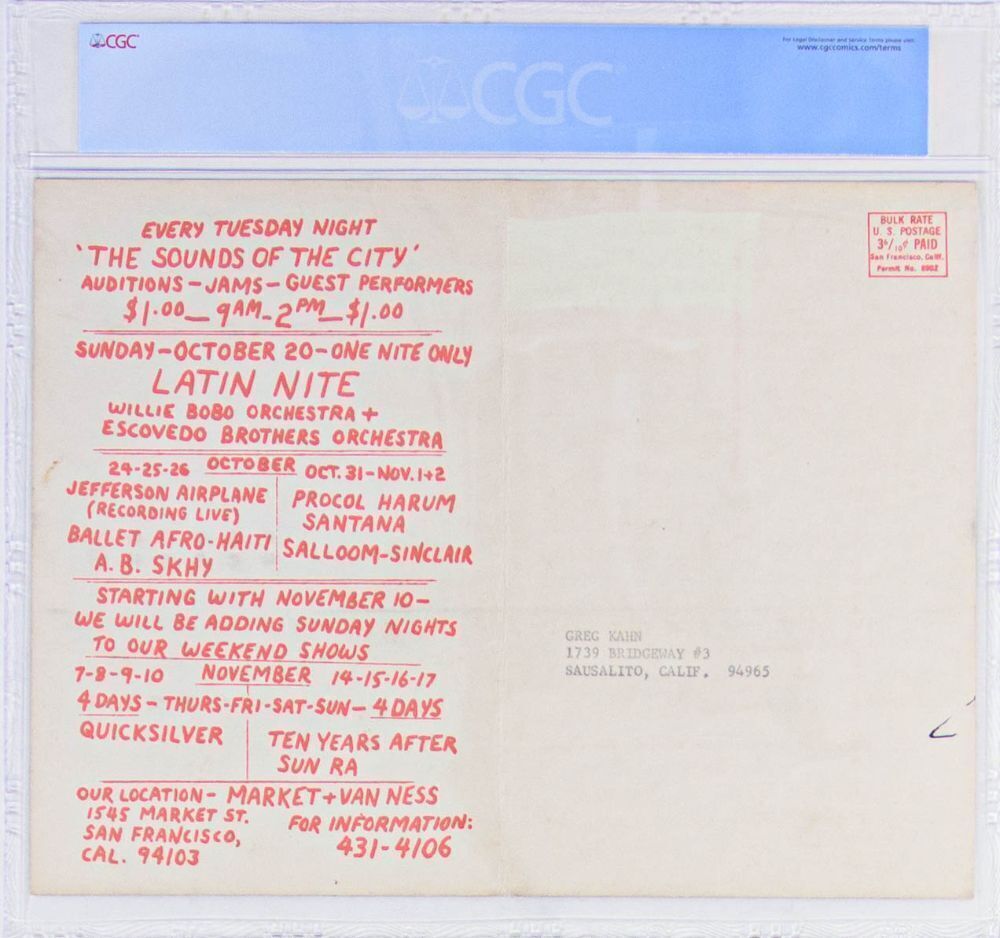 CGC
For Legal Disclaimer and Service Terms please visit:
www.cgccomics.com/terms
CGC
EVERY TUESDAY NIGHT
'THE SOUNDS OF THE CITY'
AUDITIONS-JAMS-GUEST PERFORMERS
$1.00-9AM-2PM-$1.00
SUNDAY-OCTOBER 20-ONE NITE ONLY
LATIN NITE
WILLIE BOBO ORCHESTRA +
ESCOVEDO BROTHERS ORCHESTRA
24-25-26 OCTOBER OCT. 31-NOV. 1+2
JEFFERSON AIRPLANE
(RECORDING LIVE)
BALLET AFRO-HAITI
A. B. SKHY
PROCOL HARUM
SANTANA
SALLOOM-SINCLAIR
STARTING WITH NOVEMBER 10-
WE WILL BE ADDING SUNDAY NIGHTS
TO OUR WEEKEND SHOWS
7-8-9-10 NOVEMBER 14-15-16-17
4 DAYS - THURS-FRI-SAT-SUN- 4 DAYS
QUICKSILVER
TEN YEARS AFTER
SUN RA
OUR LOCATION- MARKET+VAN NESS
1545 MARKET ST.
SAN FRANCISCO,
CAL. 94103
FOR INFORMATION:
431-4106
BULK RATE
U. S. POSTAGE
PAID
San Francisco, Calif.
Permit No. 8902
GREG KAHN
1739 BRIDGEWAY #3
SAUSALITO, CALIF. 94965